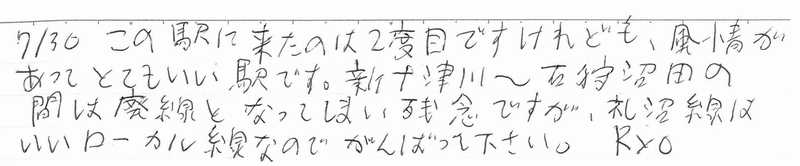 7/30 この駅に来たのは2度目ですけれども、風情が
あってとてもいい駅です。新十津川～石狩沼田の
間は廃線となってしまい残念ですが、札沼線は
いいローカル線なのでがんばって下さい。 Ryo